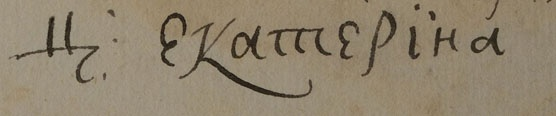 Ц: Екатерїна